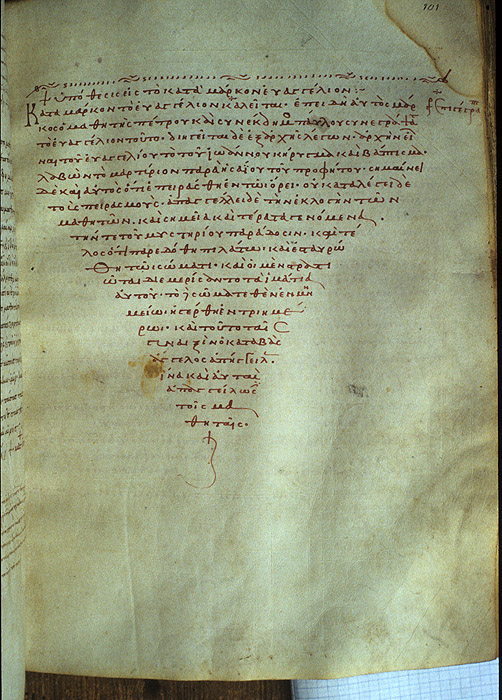 101
+ ὑπόθεσις εἰς τὸ κατὰ μάρκον εὐαγγέλιον :
Κατὰ μάρκον τὸ εὐαγγέλιον καλεῖται· ἐπειδὴ αὐτὸς μάρ
κος ὁ μαθητὴς πέτρου καὶ συνέκδημος παύλου συνεγρά
τὸ εὐαγγέλιον τοῦτο· διηγεῖται δὲ ἐξ ἀρχῆς λέγων· ἀρχὴν εἶ
ναι τοῦ εὐαγγελίου τὸ τοῦ ἰωάννου κήρυγμα καὶ βάπτισμα·
λαβὼν τὸ μαρτύριον παρὰ ἡσαΐου τοῦ προφήτου· σημαίνει
δὲ καὶ αὐτὸς ὅτι ἐπειράσθη ἐν τῶ ὄρει· οὐ καταλέγει δὲ
τοὺς πειρασμούς· ἀπαγγέλλει δὲ τὴν ἐκλογὴν τῶν
μαθητῶν· καὶ σημεῖα καὶ τέρατα γενόμενα·
τήν τε τοῦ μυστηρίου παράδοσιν· καὶ τέ
λος ὅτι παρεδόθη πιλάτω· καὶ ἐσταυρώ
θη τῶ σώματι· καὶ οἱ μὲν στρατι
ῶται διεμερίσαντο τὰ ἱμάτια
αὐτοῦ· τὸ σῶμα τεθὲν ἐν μνη
μείω· ἠγέρθη ἐν τριημέ
ρω· καὶ τοῦτο ταῖς
γυναιξὶν ὁ καταβὰς
ἄγγελος ἀπήγγειλ
ἵνα καὶ αὐταὶ
ἀπαγγείλωσ
τοῖς μα
θηταῖς·
+